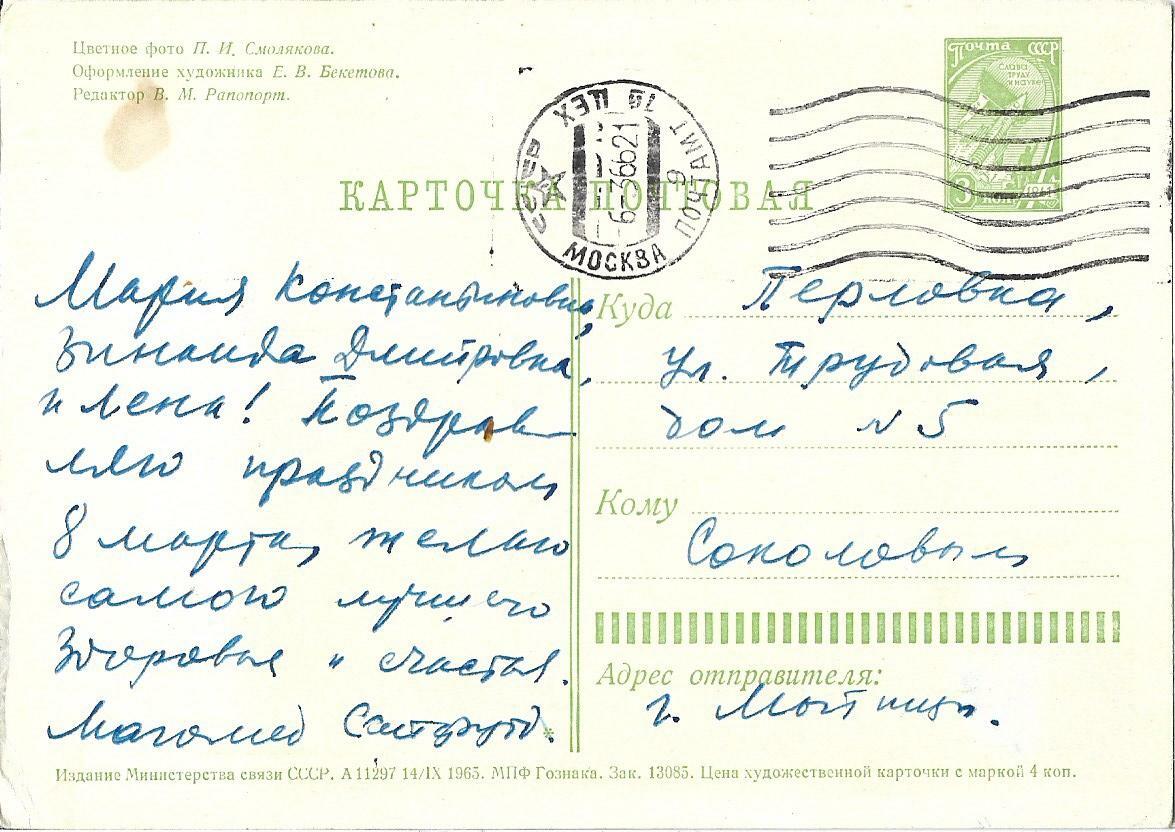 Цветное фото П. И. Смолякова.
Оформление художника Е. В. Бекетова.
Редактор В. М. Рапопорт.
Почта СССР
СЛАВА
ТРУДУ
И НАУКЕ
1961
3 коп
ЦЕХ
ПОЧТАМТ
6-36621
СССР
МОСКВА
КАРТОЧКА ПОЧТОВАЯ
Мария Константиновна,
Зинаида Дмитровна,
и Лена! Поздрав
ляю праздником
8 марта, желаю
самого лучшего
Здоровья и счастья.
Магомед
Куда Перловка,
ул. Трудовая,
дом N 5
Кому
Соколовым
Адрес отправителя:
г. Мытищи.
Издание Министерства связи СССР. А 11297 14/IX 1965. МПФ Гознака. Зак. 13085. Цена художественной карточки с маркой 4 коп.